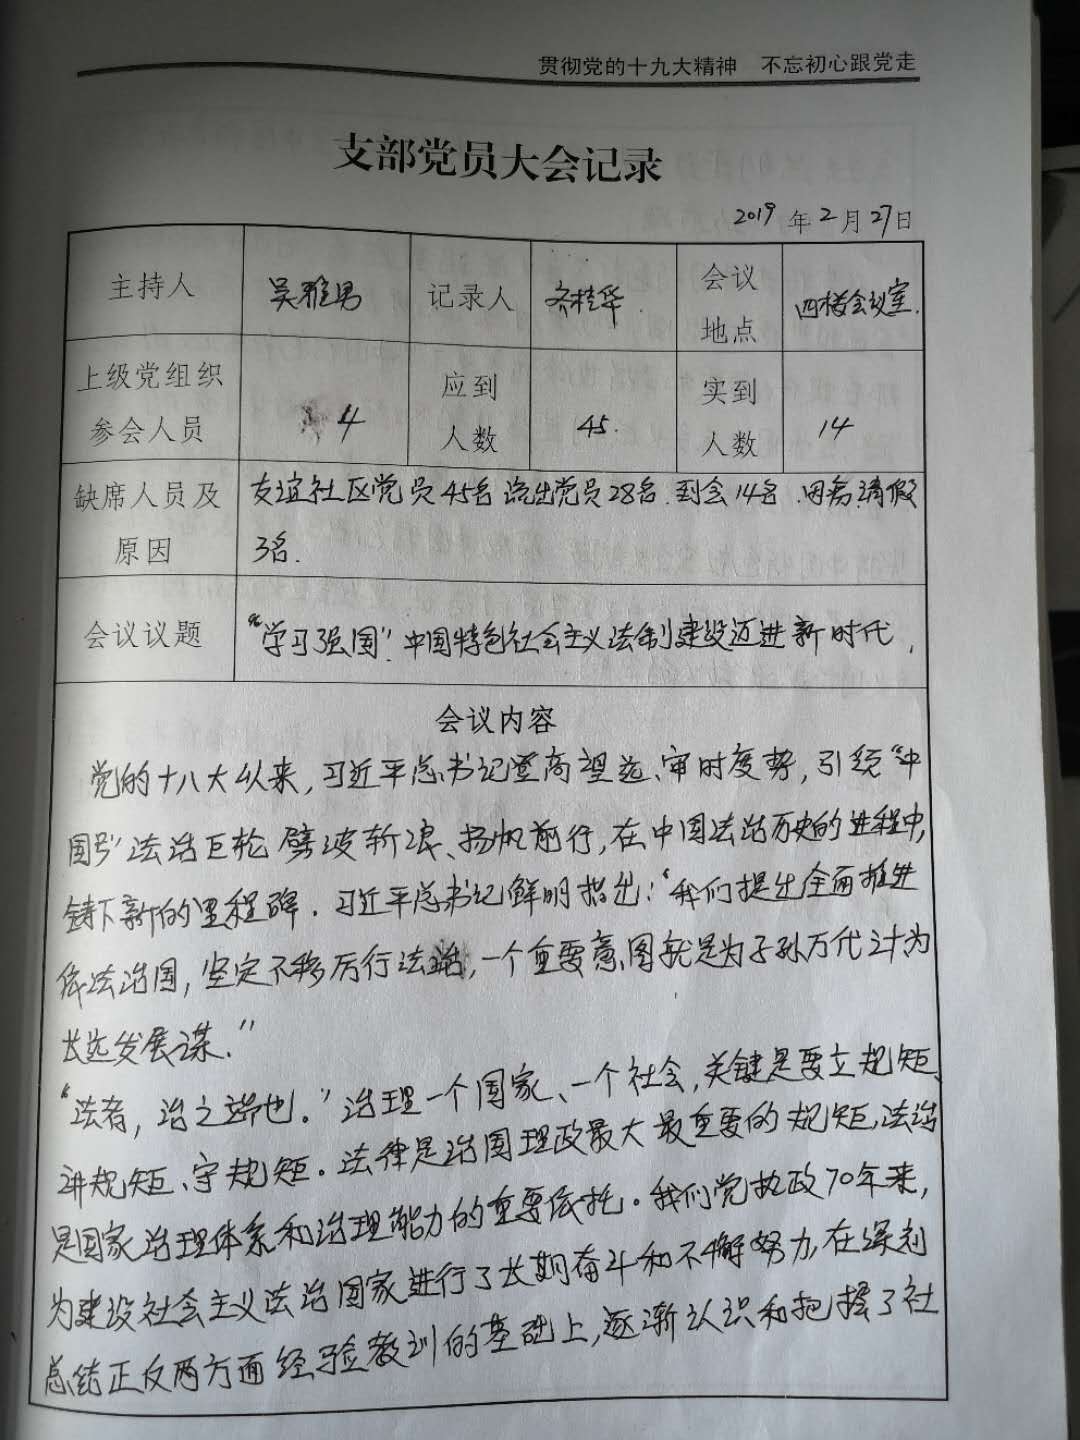 贯彻党的十九大精神 不忘初心跟党走
支部党员大会记录
2019 年 2 月 27 日
主持人 吴雅男 记录人 齐桂华 会议地点 四楼会议室.
上级党组织参会人员 4 应到人数 45. 实到人数 14
缺席人员及原因 友谊社区党员45名 流出党员28名.到会14名.因病请假
3名.
会议议题 “学习强国”.中国特色社会主义法制建设迈进新时代,
会议内容
党的十八大以来,习近平总书记登高望远、审时度势,引领“中
国号”法治巨轮劈波斩浪、扬帆前行,在中国法治历史的进程中,
铸下新的里程碑.习近平总书记鲜明指出:“我们提出全面推进
依法治国,坚定不移厉行法治,一个重要意图就是为子孙万代计为
长远发展谋.”
“法者,治之端也。”治理一个国家、一个社会,关键是要立规矩、
讲规矩、守规矩.法律是治国理政最大最重要的规矩,法治
是国家治理体系和治理能力的重要依托.我们党执政70年来,
为建设社会主义法治国家进行了长期奋斗和不懈努力,在深刻
总结正反两方面经验教训的基础上,逐渐认识和把握了社